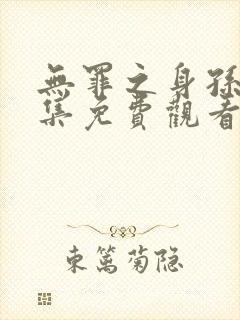 無罪之身孫
集免費觀看
東篱菊隐